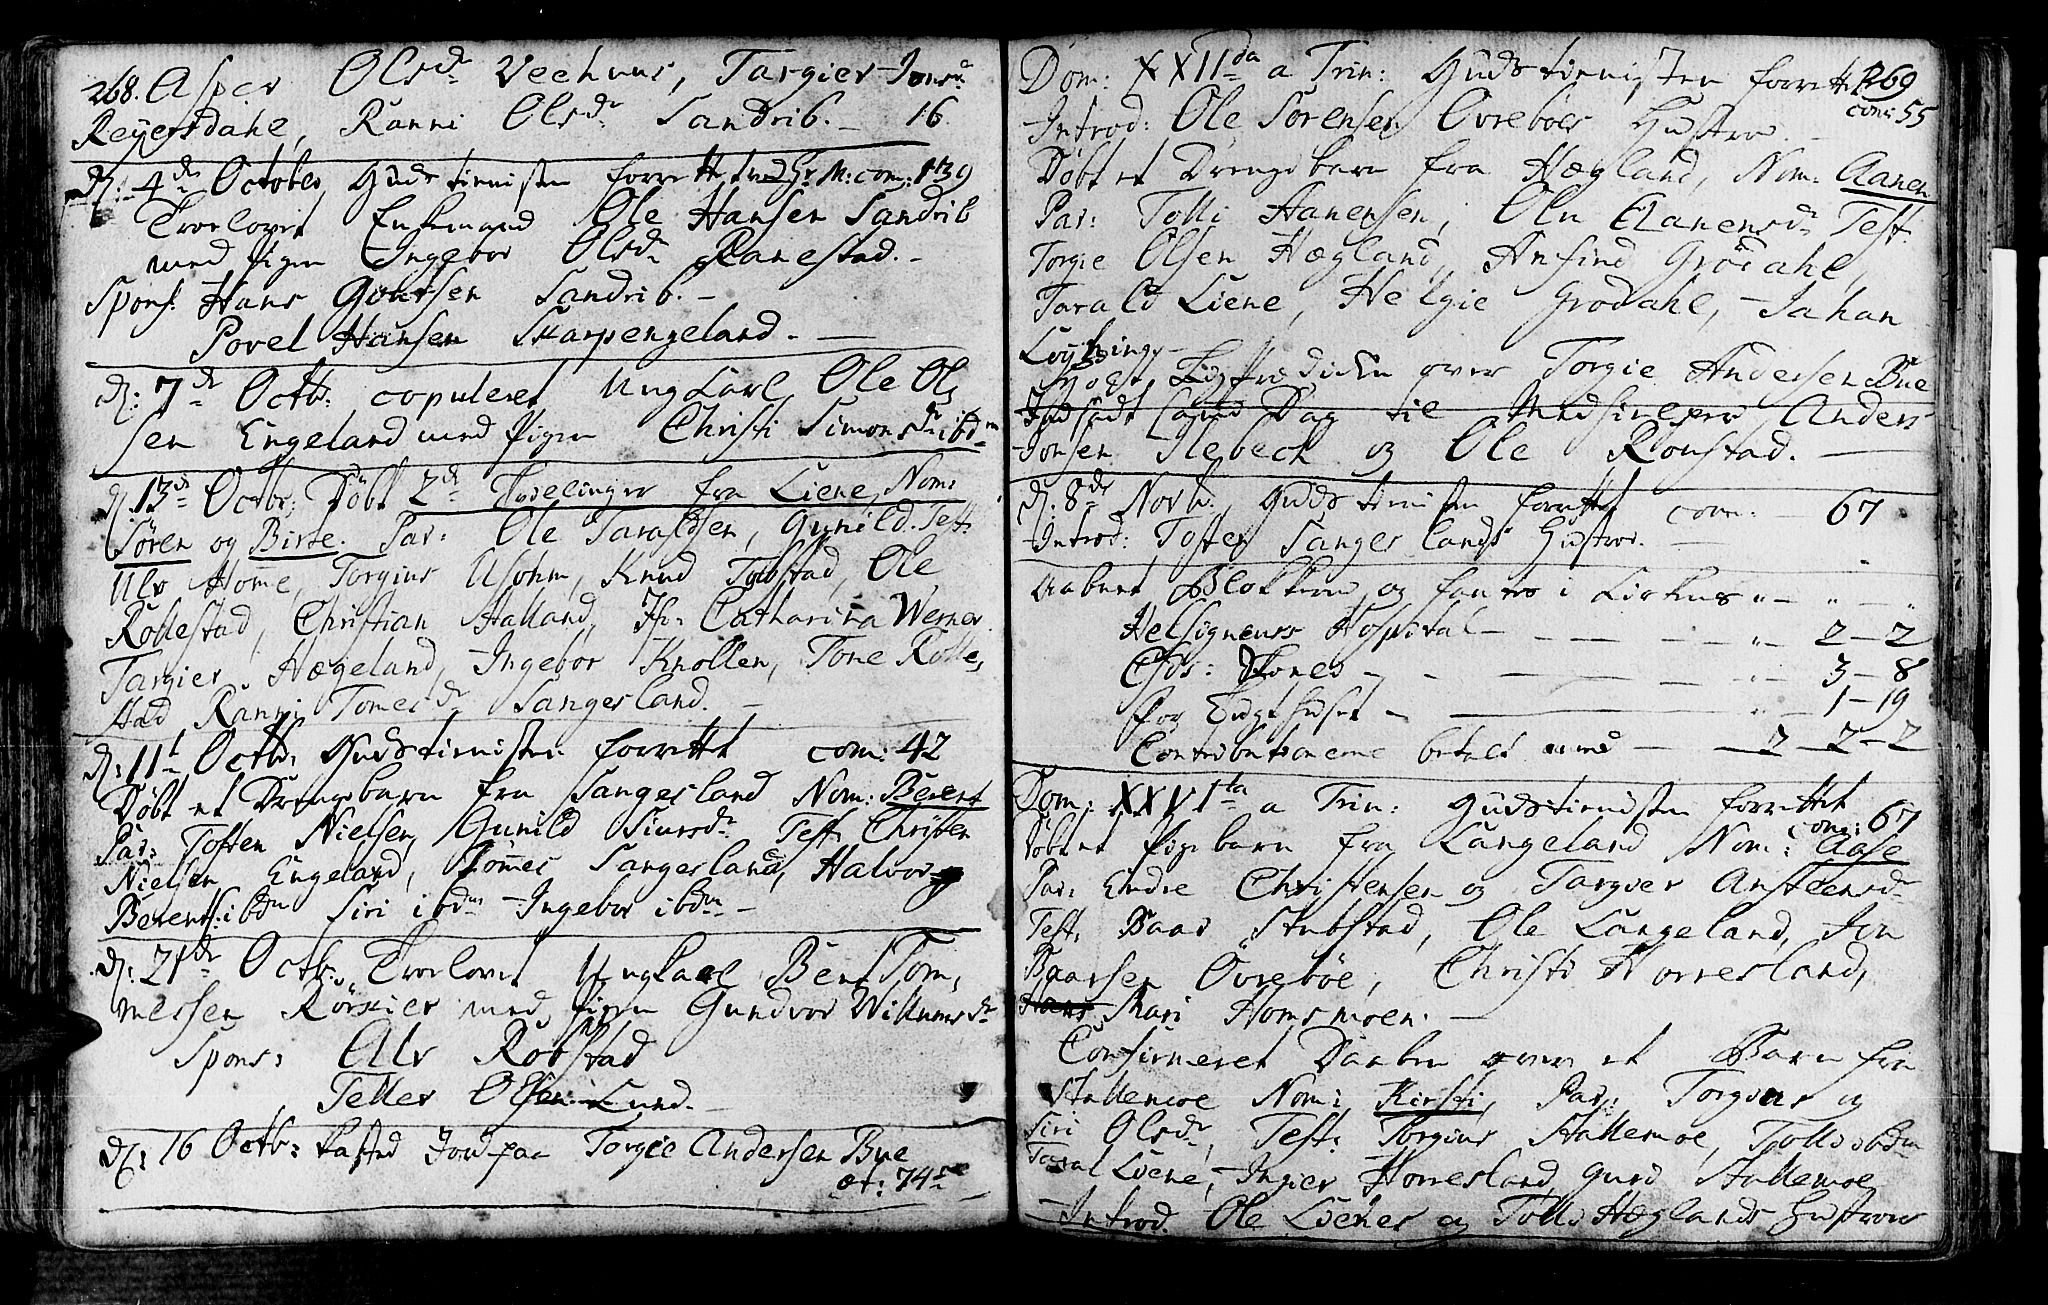 268. Asper Olsdr Veehuus, Targier Jonsdr
Reyersdahl, Ranni Olsdr Sandrib. - 16
d: 4de October Gudstienisten forrettet com: 139
Trolovet Enkemand Ole Hansen Sandrib
med Pigen Ingebor Olsdr Ranestad. -
Spons: Hans Sandrib. -
Povel Hansen Skarpengeland. -
d: 7de Octb: copuleret Ungkarl Ole Ol,
sen Engeland med Pigen Christi Simonsdr ibdm
d: 13de Octbr: Döbt 2de Tvelinger fra Liene, Nom:
Sören og Birte. Par: Ole Taraldsen, Gunild. Test:
Ulv Home, Torgius Usohm, Knud Tobstad, Ole
Rollestad, Christian Halland, Jfr: Catharina Werner
Targier Hægeland, Ingebor Knollen, Tone Rolle,
stad Ranni Tomesdr Sangesland. -
d: 11t Octb: Gudstienisten forrettet com: 42
Döbt et Drengebarn fra Sangesland Nom: Berent
Par: Tosten Nielsen, Gunild Siursdr Test: Christen
Nielsen Engeland, Tommes Sangesland, Halvor
Berents: ibdm Siri ibdm Ingebor ibdm -
d: 21de Octb: Trolovet Ungkarl Bent Tom,
messen Rörkier med Pigen Gundvor Willumsdr
Spons: Alv Robstad
Tellev Olsen Lund. -
d: 16 Octb: kasted Jord paa Torgie Andersen Bue
æt: 74
Dom: XXIIda a Trin: Gudstienisten forrettet 269
com: 55
Introd: Ole Sörensen Övreböes Hustroe -
Döbt et Drengebarn fra Hægland, Nom: Aanen
Par: Tolli Aanensen, Olu Aanensdr Test:
Torgie Olsen Hægland, Anfind Grödahl,
Tarald Liene, Helgie Grödahl, Johan
Löyning -
Holdt Liigprædicken over Torgie Andersen Bue
Indsadt samme Dag til Medhielpere Anders
Jonsen Ilebech og Ole Ronstad. -
d: 8de Novbr. Gudstienisten forrettet com: - 67
Introd: Tosten Sangeslands Hustroe. -
Aabnet Blokken og fantes i Kirkens " - " - "
Helsigneurs Hospital - - - " - 2 - 2
Ejds: Thones - - - " - 3 - 8
for Tugthuset - - " - 1 - 19
Contributionerne betalt med - 2 - 2 - 2
Dom: XXVIta a Trin: Gudstienisten forrettet
com: 67
Döbt et Pigebarn fra Langeland Nom: Aase
Par: Endre Christensen og Targier Ansteensdr
Test: Baar Stubstad, Ole Langeland, Jon
Baarsen Övreböe, Christi Horresland,
Mari Homsmoen. -
Confirmeret Daaben over et Barn fra
Stallemoe Nom: Kirsti, Par: Torgius og
Siri Olsdr, Test: Torgius Stallemoe, Tolli ibdm
Taral Liene, Inger Horresland, Gurd Stallemoe
Introd: Ole Lienes og Tolli Hæglands Hustroer